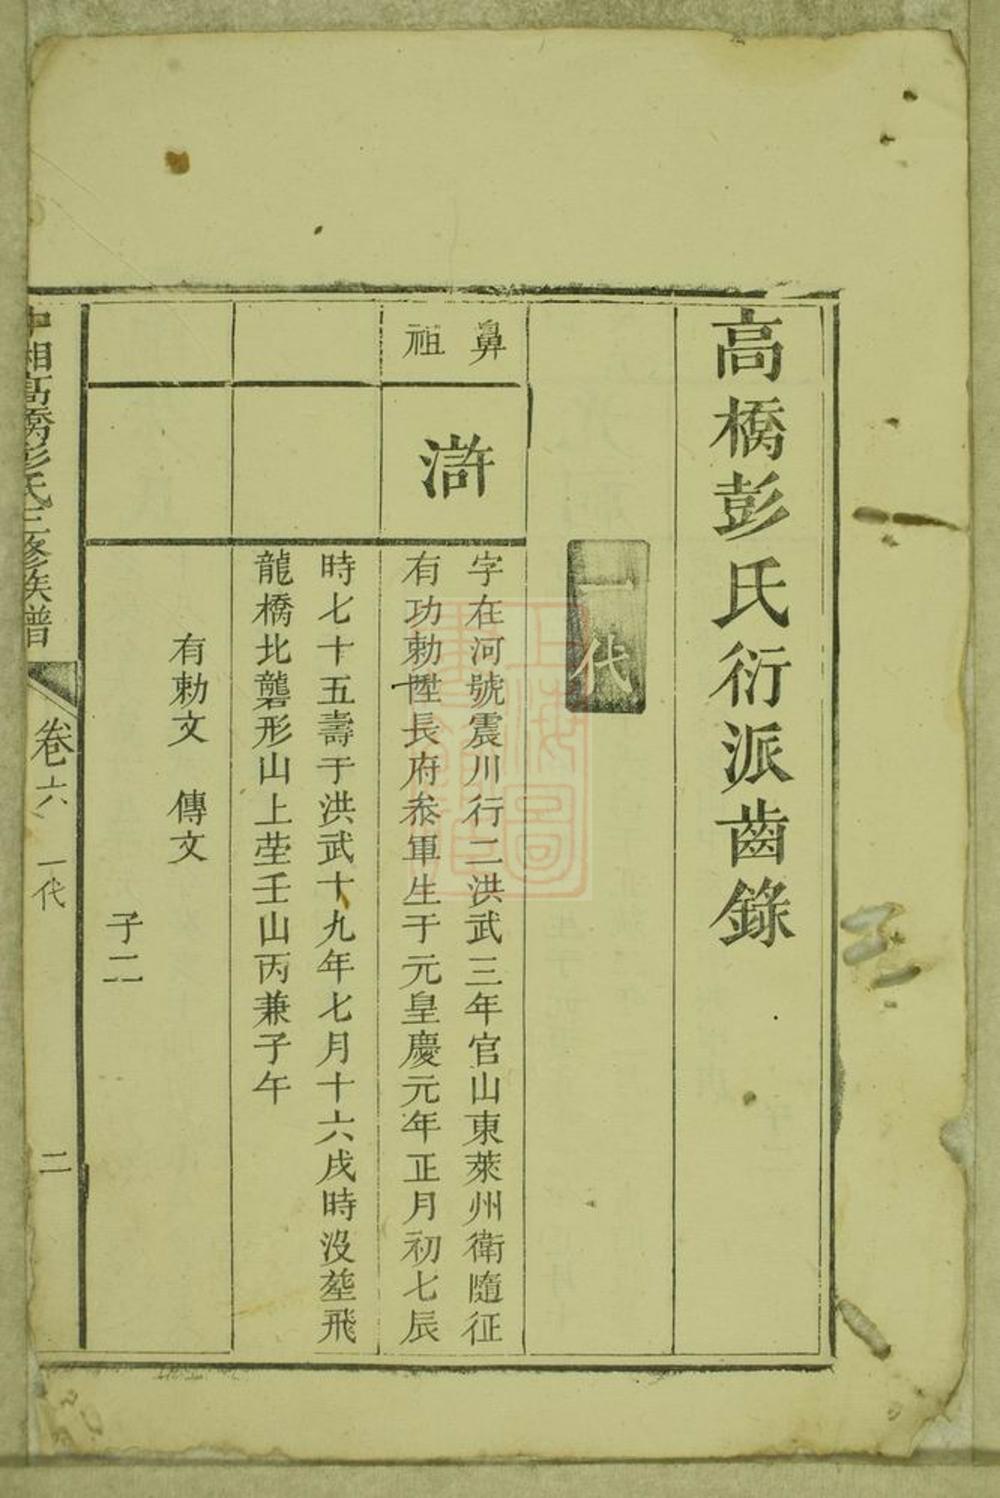 高橋彭氏衍派齒錄
一代
鼻祖
滸
字在河號震川行二洪武三年官山東萊州衛隨征
有功勅陞長府叅軍生于元皇慶元年正月初七辰
時七十五壽于洪武十九年七月十六戌時沒塟飛
龍橋北礱形山上塋壬山丙兼子午
有勅文 傳文
子二
中湘高橋彭氏三修族譜
卷六
一代
二
上海圖書館藏